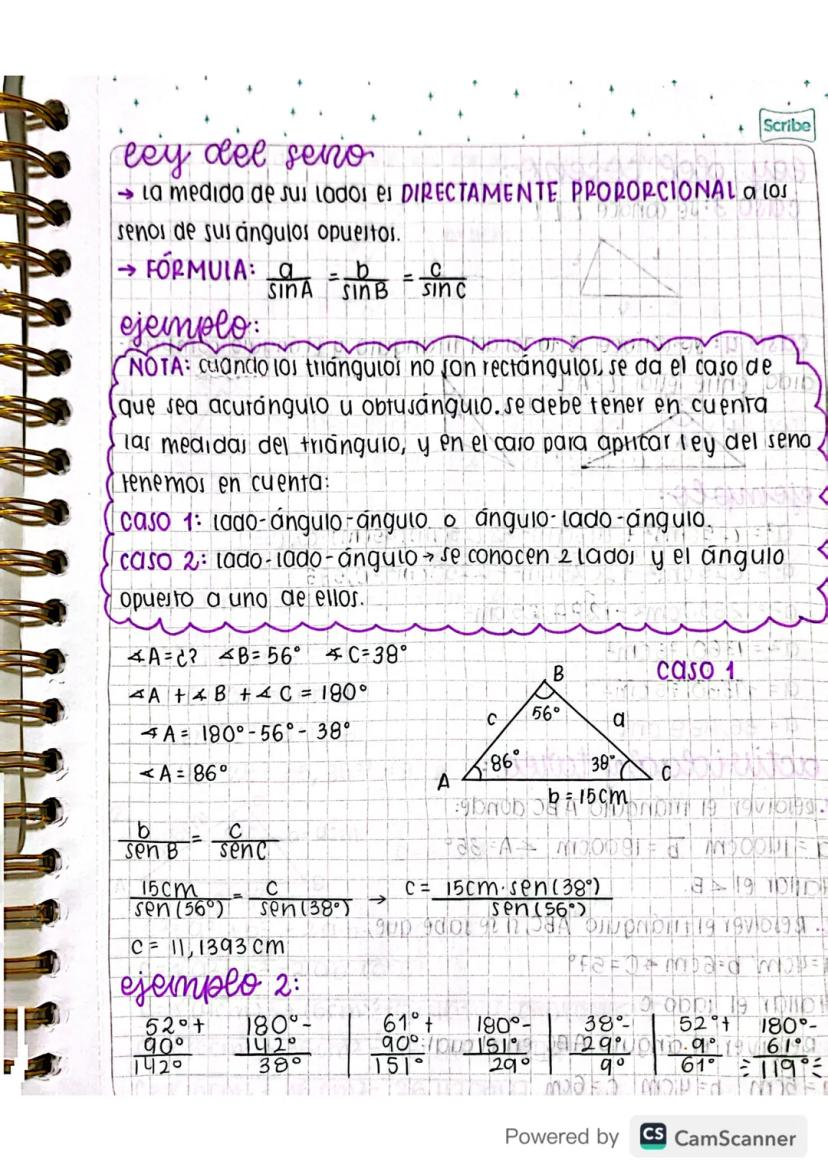 Scribe
ley del seno
→ La medida de sus lados es DIRECTAMENTE PROPORCIONAL a los
senos de sus ángulos opuestos.
→ FÓRMULA: a/sinA = b/sinB = c/sinC
ejemplo:
NOTA: cuando los triángulos no son rectángulos, se da el caso de
que sea acutángulo u obtusángulo. se debe tener en cuenta
las medidas del triángulo, y en el caso para aplicar ley del seno
tenemos en cuenta:
caso 1: lado-ángulo-ángulo o ángulo-lado-ángulo.
caso 2: lado-lado-ángulo → se conocen 2 lados y el ángulo
opuesto a uno de ellos.
∢A=¿? ∢B=56° ∢C=38°
∢A + ∢B + ∢C = 180°
∢A = 180°-56°-38°
∢A = 86°
caso 1
B
c 56° a
A 86° 38° C
b=15cm
b/senB = c/senC
15cm/sen(56°) = c/sen(38°) → c = 15cm·sen(38°)/sen(56°)
c = 11,1393cm
ejemplo 2:
52°+ 180°- 61°+ 180°- 38°- 52°+ 180°-
90° 142° 90° 151° 29° 9° 61°
142° 38° 151° 29° 9° 61° 119°
Powered by CS CamScanner